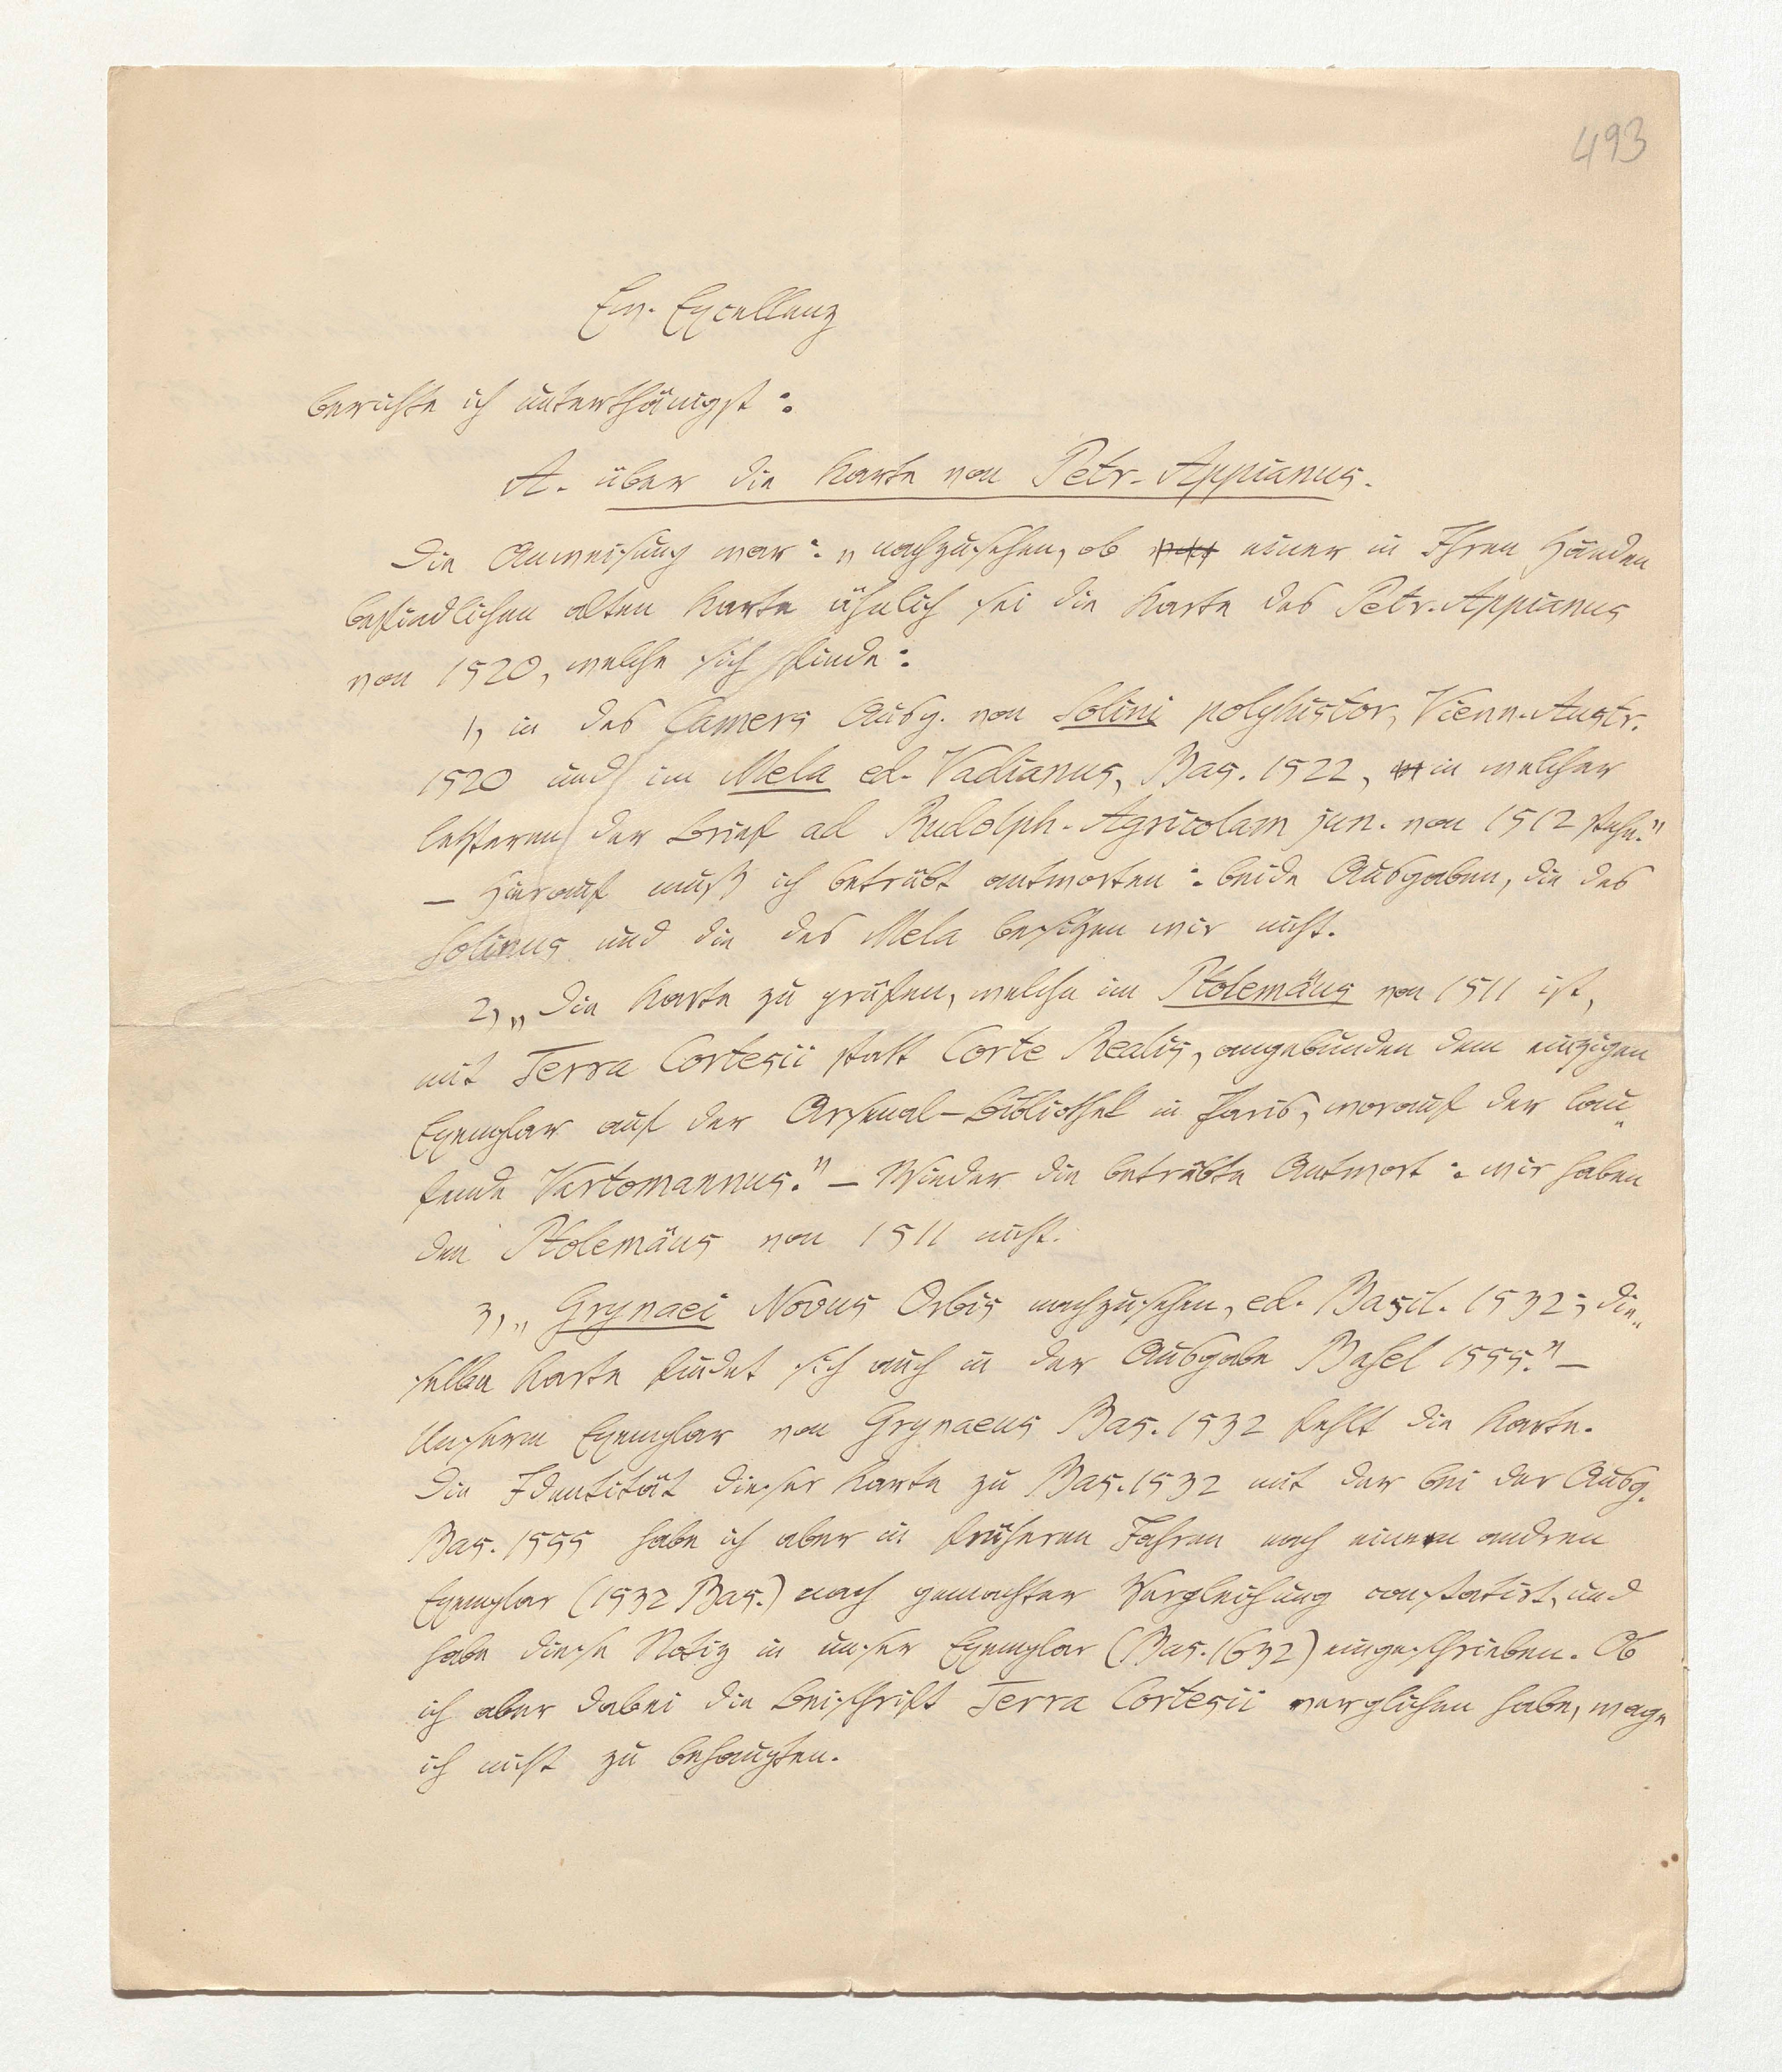 493
Ew. Excellenz
berichte ich unterthänigst:
A. über die Karte von Petr. Appianus.
Die Anweisung war: „nachzusehen, ob einer in Ihren Händen
befindlichen alten Karte ähnlich sei die Karte des Petr. Appianus
von 1520, welche sich finde:
1, in des Camers Ausg. von Solini polyhistor, Vienn. Austr.
1520 und im Mela ed. Vadianus, Bas. 1522, in welcher
letzteren der Brief ad Rudolph. Agricolam jun. von 1512 stehe."
– Hierauf muß ich betrübt antworten: beide Ausgaben, die des
Solinus und die des Mela besitzen wir nicht.
2, „Die Karte zu prüfen, welche im Ptolemäus von 1511 ist,
mit Terra Cortesii statt Corte Realis, angebunden dem einzigen
Exemplar auf der Arsenal-Bibliothek in Paris, worauf der lau„
fende Vartomannus." – Wieder die betrübte Antwort: wir haben
den Ptolemäus von 1511 nicht.
3, „Grynaei Novus Orbis nachzusehen, ed. Basil. 1532; die„
selbe Karte findet sich auch in der Ausgabe Basel 1555." –
Unserm Exemplar von Grynaeus Bas. 1532 fehlt die Karte.
Die Identität dieser Karte zu Bas. 1532 mit der bei der Ausg.
Bas. 1555 habe ich aber in früheren Jahren nach einem andren
Exemplar (1532 Bas.) nach gemachter Vergleichung constatirt, und
habe diese Notiz in unser Exemplar (Bas. 1632) eingeschrieben. Ob
ich aber dabei die Beischrift Terra Cortesii verglichen habe, wage
ich nicht zu behaupten.